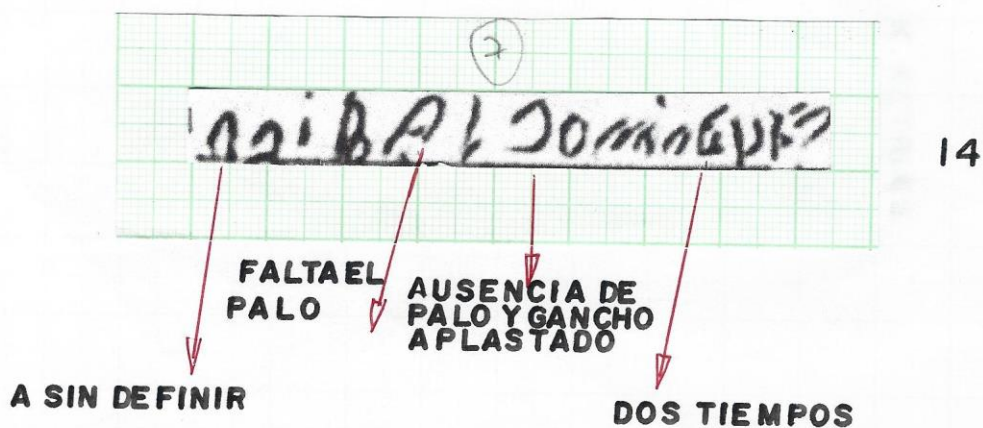 7
AniBAl DominGuEz
14
FALTA EL PALO
AUSENCIA DE
PALO Y GANCHO
APLASTADO
A SIN DEFINIR
DOS TIEMPOS